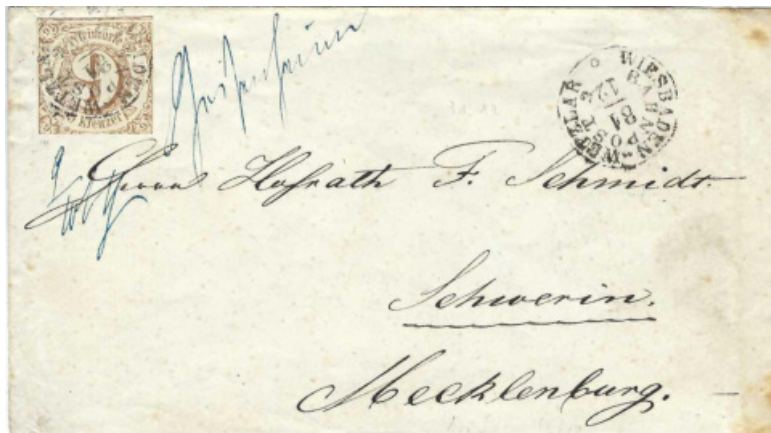 9
Kreuzer
Geisenheim
WIESBADEN-WETZLAR
BAHNPOST
12
81
Herrn Hofrath F. Schmidt.
Schwerin.
Mecklenburg.